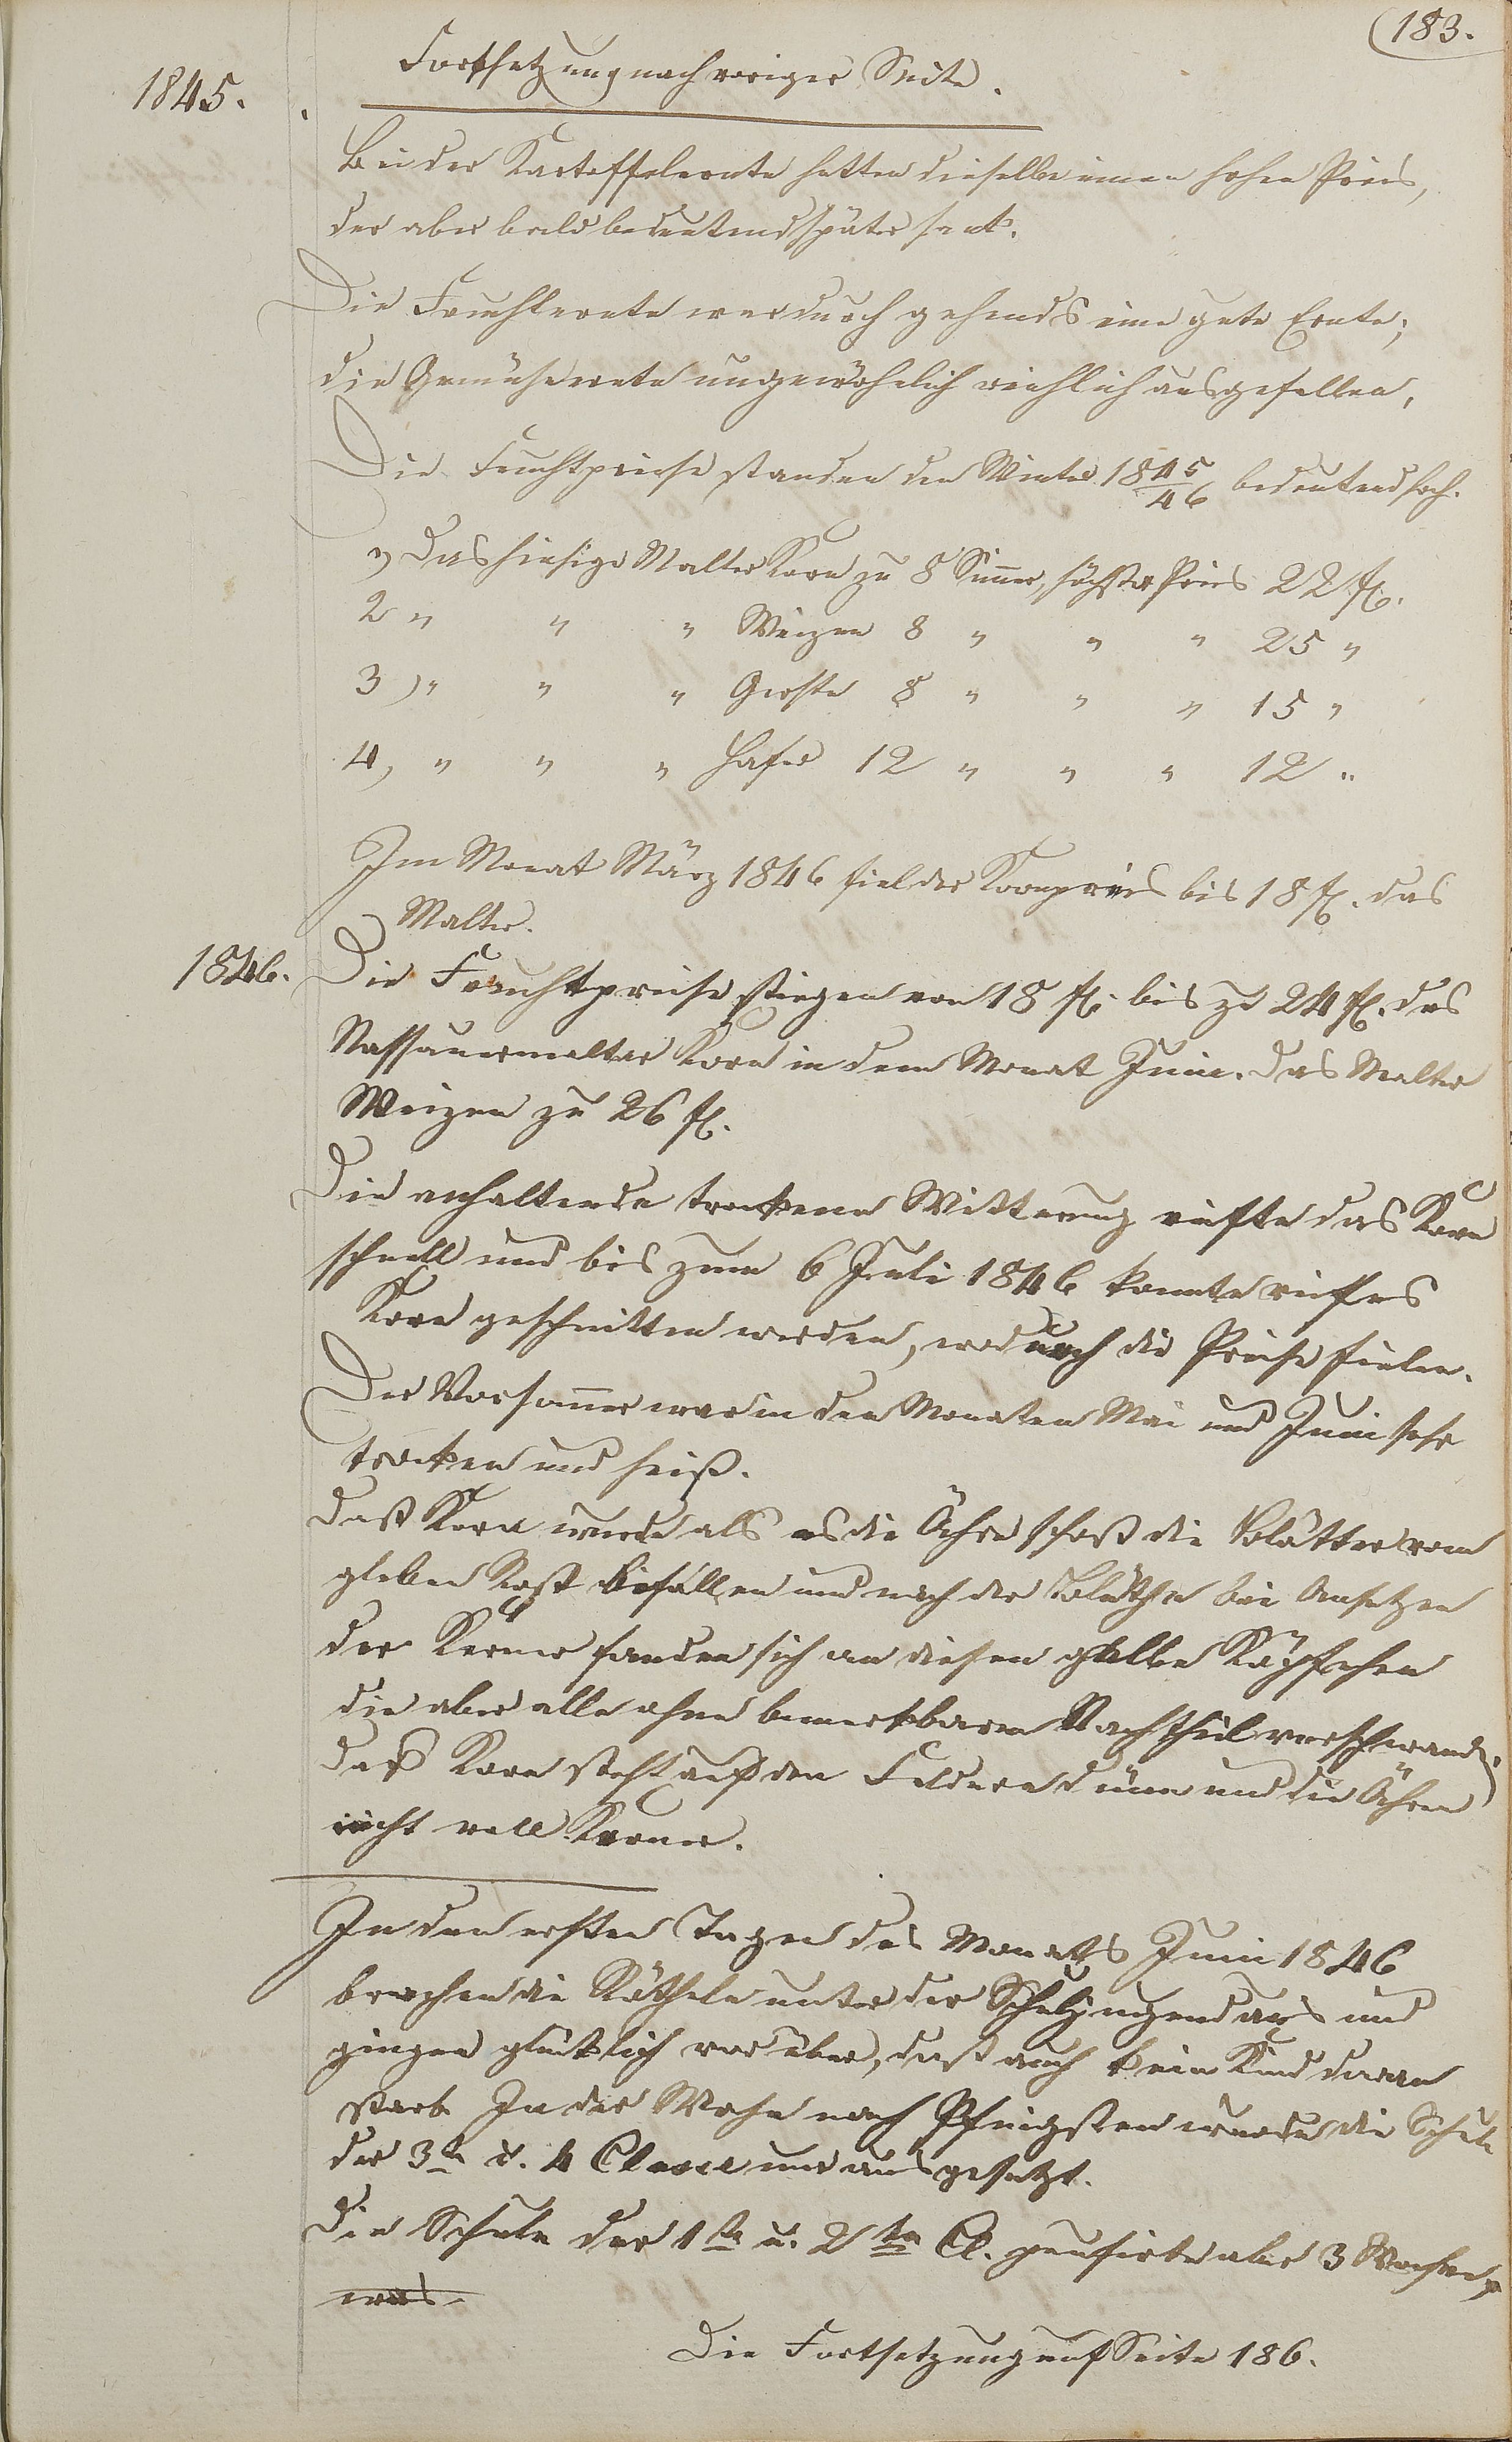 (183.
Fortsetzung nach voriger Seite.
1845.
Bei der Kartoffelernte hatten dieselbe einen hohen Preis,
der aber bald bedeutend später sank.
Die Fruchternte war durch gehends eine gute Ernte;
die Gemüseernte ungewöhnlich reichlich ausgefallen,
Die Fruchtpreise standen den Winter 1845/46 bedeutend hoch.
1) Das hiesige Malter Korn zu 8 Simmer, höchster Preis 22 fl.
2 " " " Weizen 8 " " " 25 "
3) " " " Gerste 8 " " " 15 "
4, " " " Hafer 12 " " " 12 "
Im Monat März 1846 fiel der Kornpreis bis 18 fl. das
Malter.
1846.
Die Fruchtpreise stiegen von 18 fl. bis zu 24 fl. das
Nassauermalter Korn in dem Monat Juni. Das Malter
Weizen zu 26 fl.
Die anhaltende trockene Witterung reifte das Korn
schnell und bis zum 6 Juli 1846 konnte reifes
Korn geschnitten werden, wodurch die Preise fielen.
Der Vorsommer war in den Monaten Mai und Juni sehr
trocken und heiß.
Daß Korn wurde als es die Ähre schoß die Blätter vom
gelben Rost befallen und nach der Blüthe bei Ansetzen
der Kerner fanden sich an diesen gelbe Köpfchen
die aber alle ohne bemerkbaren Nachtheil verschwanden.
Daß Korn steht auf den Feldern dünn und die Ähren
nicht voll Kerner.
In den ersten Tagen des Monats Juni 1846
brachen die Rötheln unter der Schuljugend aus und
gingen glücklich vorüber, daß auch kein Kind daran
starb. In der Woche nach Pfingsten wurde die Schule
der 3ten u. 4 Classe nur ausgesetzt.
Die Schule der 1ten u. 2ten Cl. pausirte aber 3 Wochen,
was
Die Fortsetzung auf Seite 186.